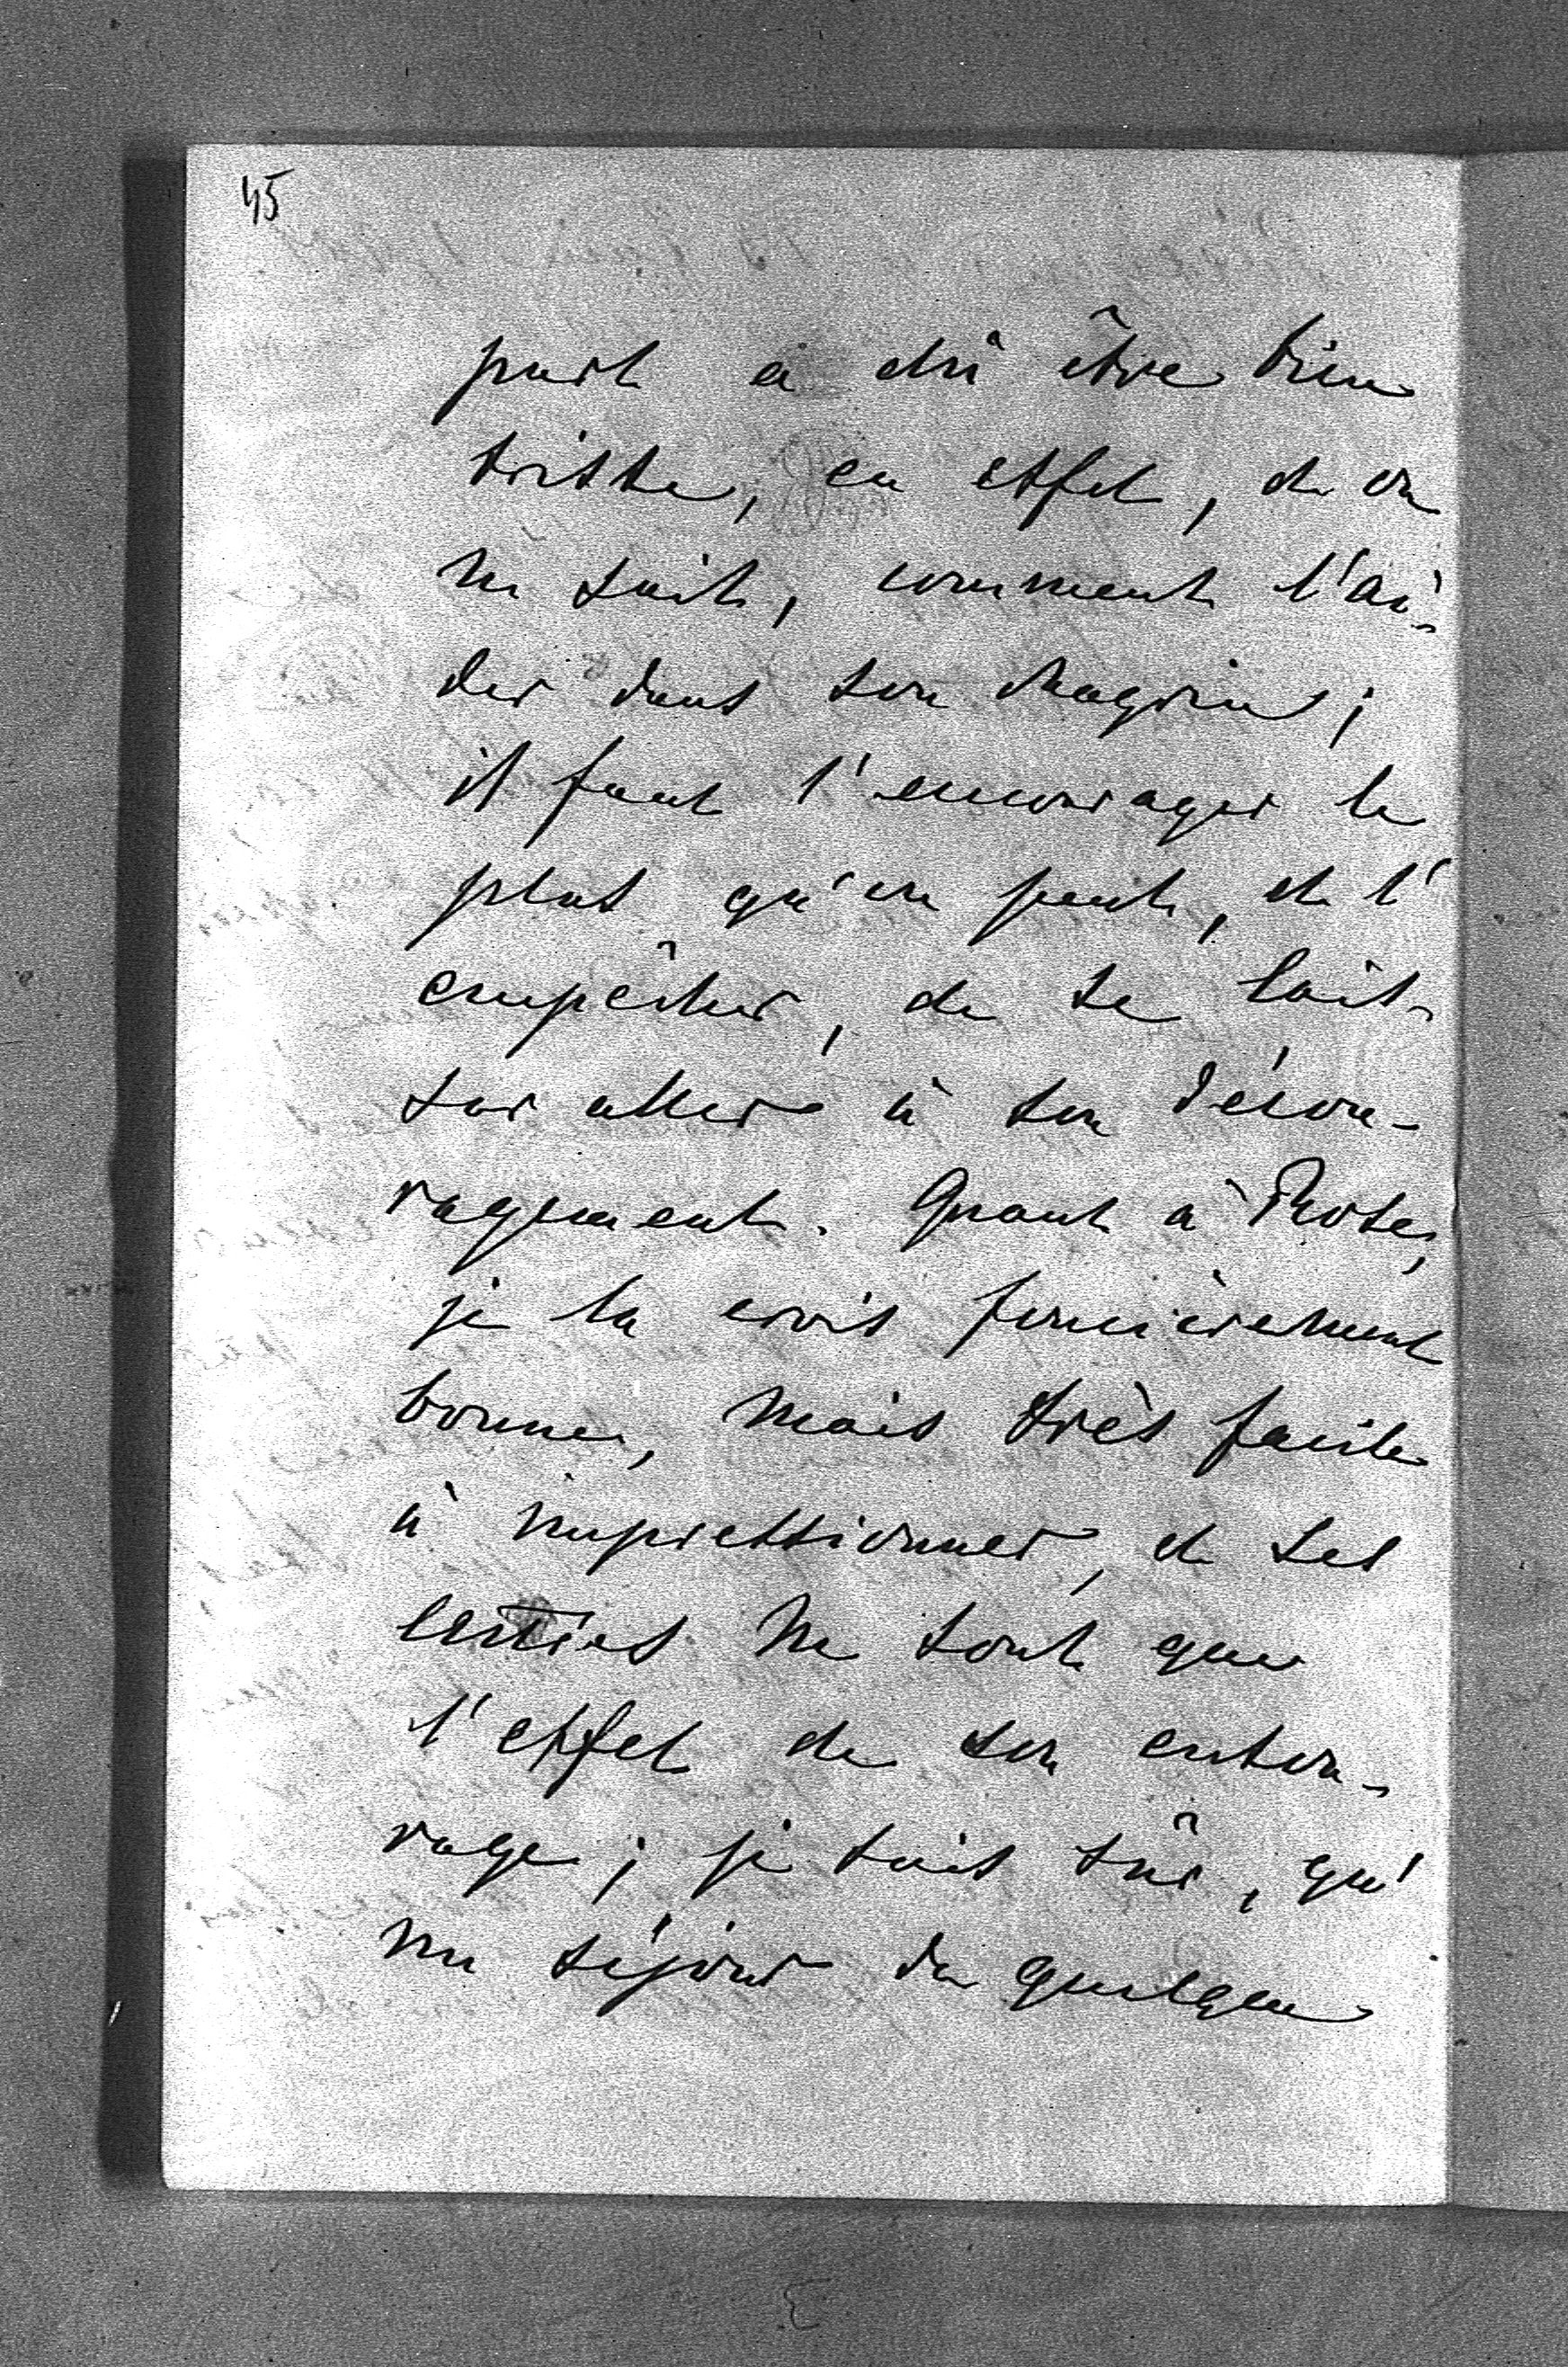 45
part a dû être bien
triste, en effet, et on
ne sait, comment l'ai-
der dans son chagrin;
il faut l'encourager le
plus qu'on peut, et l'
empêcher, de se lais-
ser aller à son décou-
ragement. Quant à Rose,
je la crois foncièrement
bonne, mais très facile
à impressionner, et ses
lettres ne sont que
l'effet de son entou-
rage; je suis sûr, qu'
un séjour de quelque